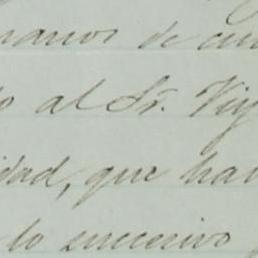 manos de cu
o al Sr. Viy
idad, que han
lo sucesivo